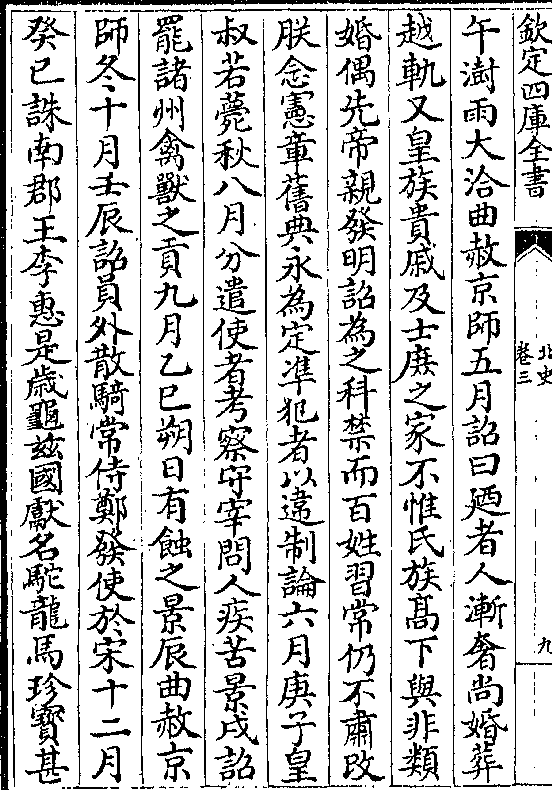 欽定四庫全書
北史
卷三
九
午澍雨大洽曲赦京師五月詔曰廼者人漸奢尚婚葬
越軌又皇族貴戚及士庶之家不惟氏族髙下與非類
婚偶先帝親發明詔為之科禁而百姓習常仍不肅改
朕念憲章舊典永為定凖犯者以違制論六月庚子皇
叔若薨秋八月分遣使者考察守宰問人疾苦景戌詔
罷諸州禽獸之貢九月乙巳朔日有蝕之景辰曲赦京
師冬十月壬辰詔員外散騎常侍鄭發使於宋十二月
癸巳誅南郡王李惠是歲龜兹國獻名駝龍馬珍寳甚